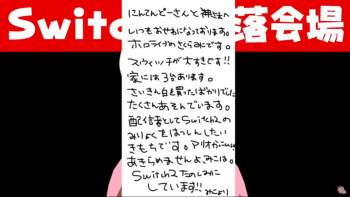 Switch 落会場
にんてんどーさんと神さまへ
いつもおせわになっております。
ホロライブのさくらみこです。
スウィッチが大すきです!!
家には3台あります。
さいきん白を買ったばかりでした
たくさんあそんでいます。
配信者としてSwitch2の
みりょくをはっしんしたい
きもちです。
あきらめませんよみこは。
Switch2たのしみに
しています!!
みこより